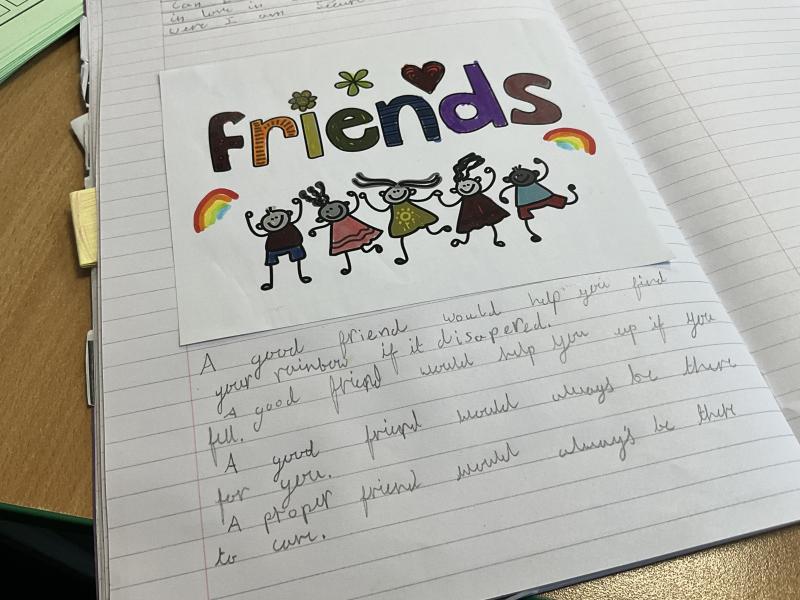 in love in
were I am secure
friends
A good friend would help you find
your rainbow if it disapered.
A good friend would help you up if you
fell.
A good friend would always be there
for you.
A proper friend would always be there
to care.